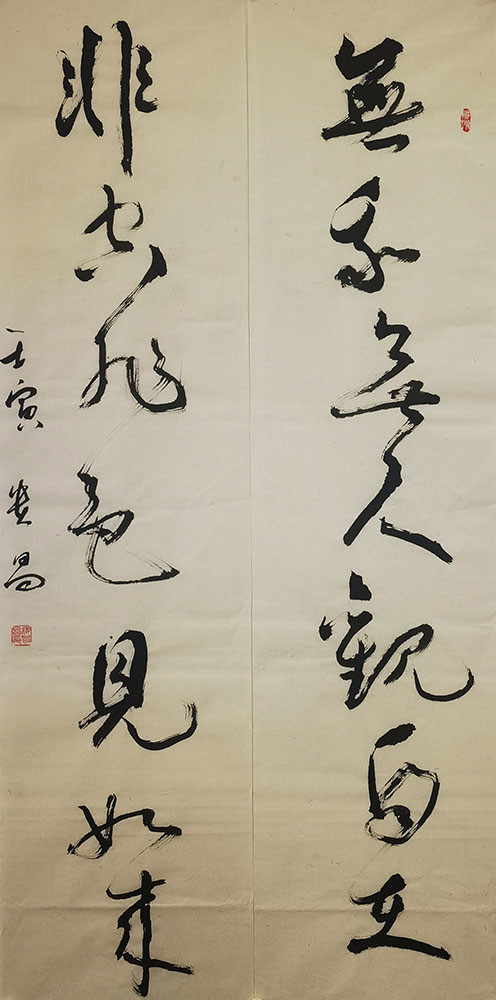 無我無人觀自在
非空非色見如来
壬寅 贵昌